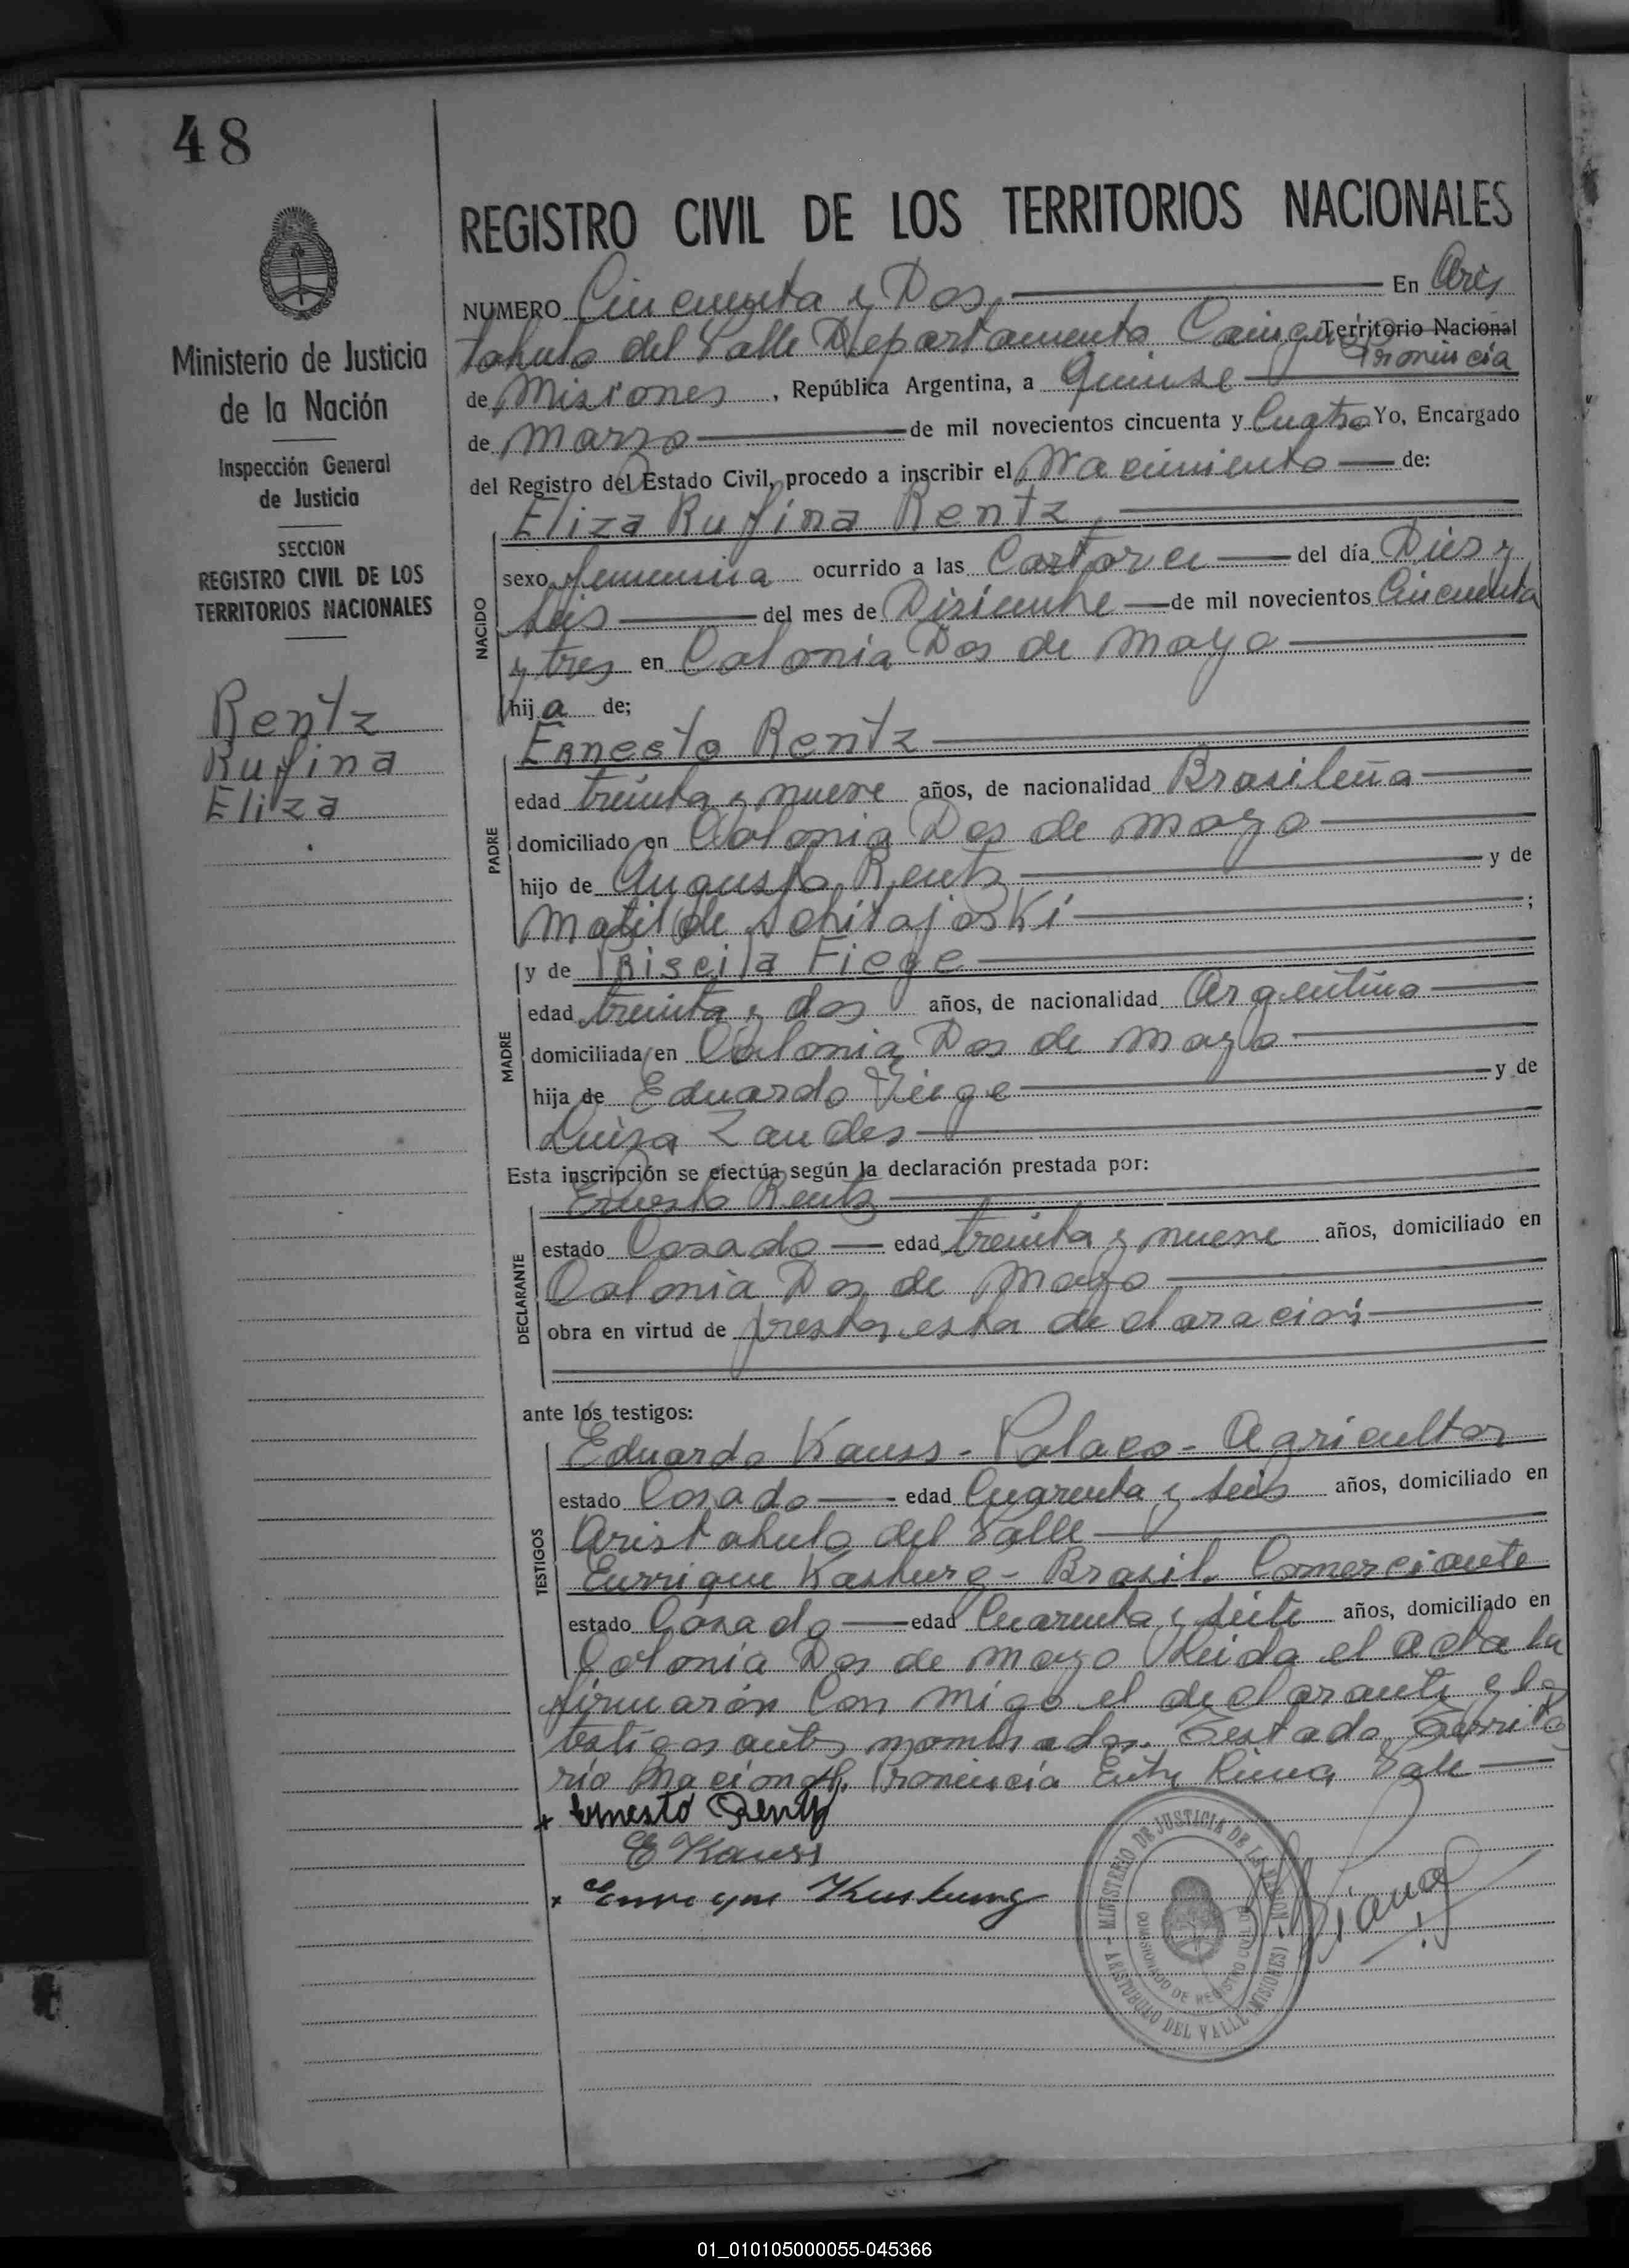 48
REGISTRO CIVIL DE LOS TERRITORIOS NACIONALES
Ministerio de Justicia
de la Nación
Inspección General
de Justicia
SECCION
REGISTRO CIVIL DE LOS
TERRITORIOS NACIONALES
Rentz
Rufina
Eliza
NUMERO Cincuenta y Dos En Aris
tobulo del Valle Departamento Cainguas Territorio Nacional
Provincia
de Misiones, República Argentina, a Quinse
de Marzo de mil novecientos cincuenta y Cuatro Yo, Encargado
del Registro del Estado Civil, procedo a inscribir el Nacimiento de:
NACIDO
Eliza Rufina Rentz
sexo femenina ocurrido a las Cartorce del día Dies y
seis del mes de Diziembre de mil novecientos Cincuenta
y tres en Colonia Dos de Mayo
hija de;
PADRE
Ernesto Rentz
edad treinta y nueve años, de nacionalidad Brasileña
domiciliado en Colonia Dos de Mayo
hijo de Augusto Rentz y de
Matilde Schitajoski;
MADRE
y de Priscila Fiege
edad treinta y dos años, de nacionalidad Argentina
domiciliada en Colonia Dos de Mayo
hija de Eduardo Fiege y de
Luisa Zandes
Esta inscripción se efectúa según la declaración prestada por:
DECLARANTE
Ernesto Rentz
estado Casado edad treinta y nueve años, domiciliado en
Colonia Dos de Mayo
obra en virtud de prestar esta declaración
ante los testigos:
TESTIGOS
Eduardo Kauss - Polaco - Agricultor
estado Casado edad Cuarenta y seis años, domiciliado en
Aristobulo del Valle
Enrrique Kasburg - Brasil. Comerciante
estado Casado edad Cuarenta y siete años, domiciliado en
Colonia Dos de Mayo Leida el acta la
firmarón Con migo el declarante y los
testigos antes nombrados. Testado, Territo
rio Nacional. Provincia Entre Linea Vale
x Ernesto Rentz
E Kauss
x Enrrique Kasburg
MINISTERIO DE JUSTICIA DE LA NACION
REGISTRO CIVIL
ARISTOBULO DEL VALLE (MISIONES)
01_010105000055-045366